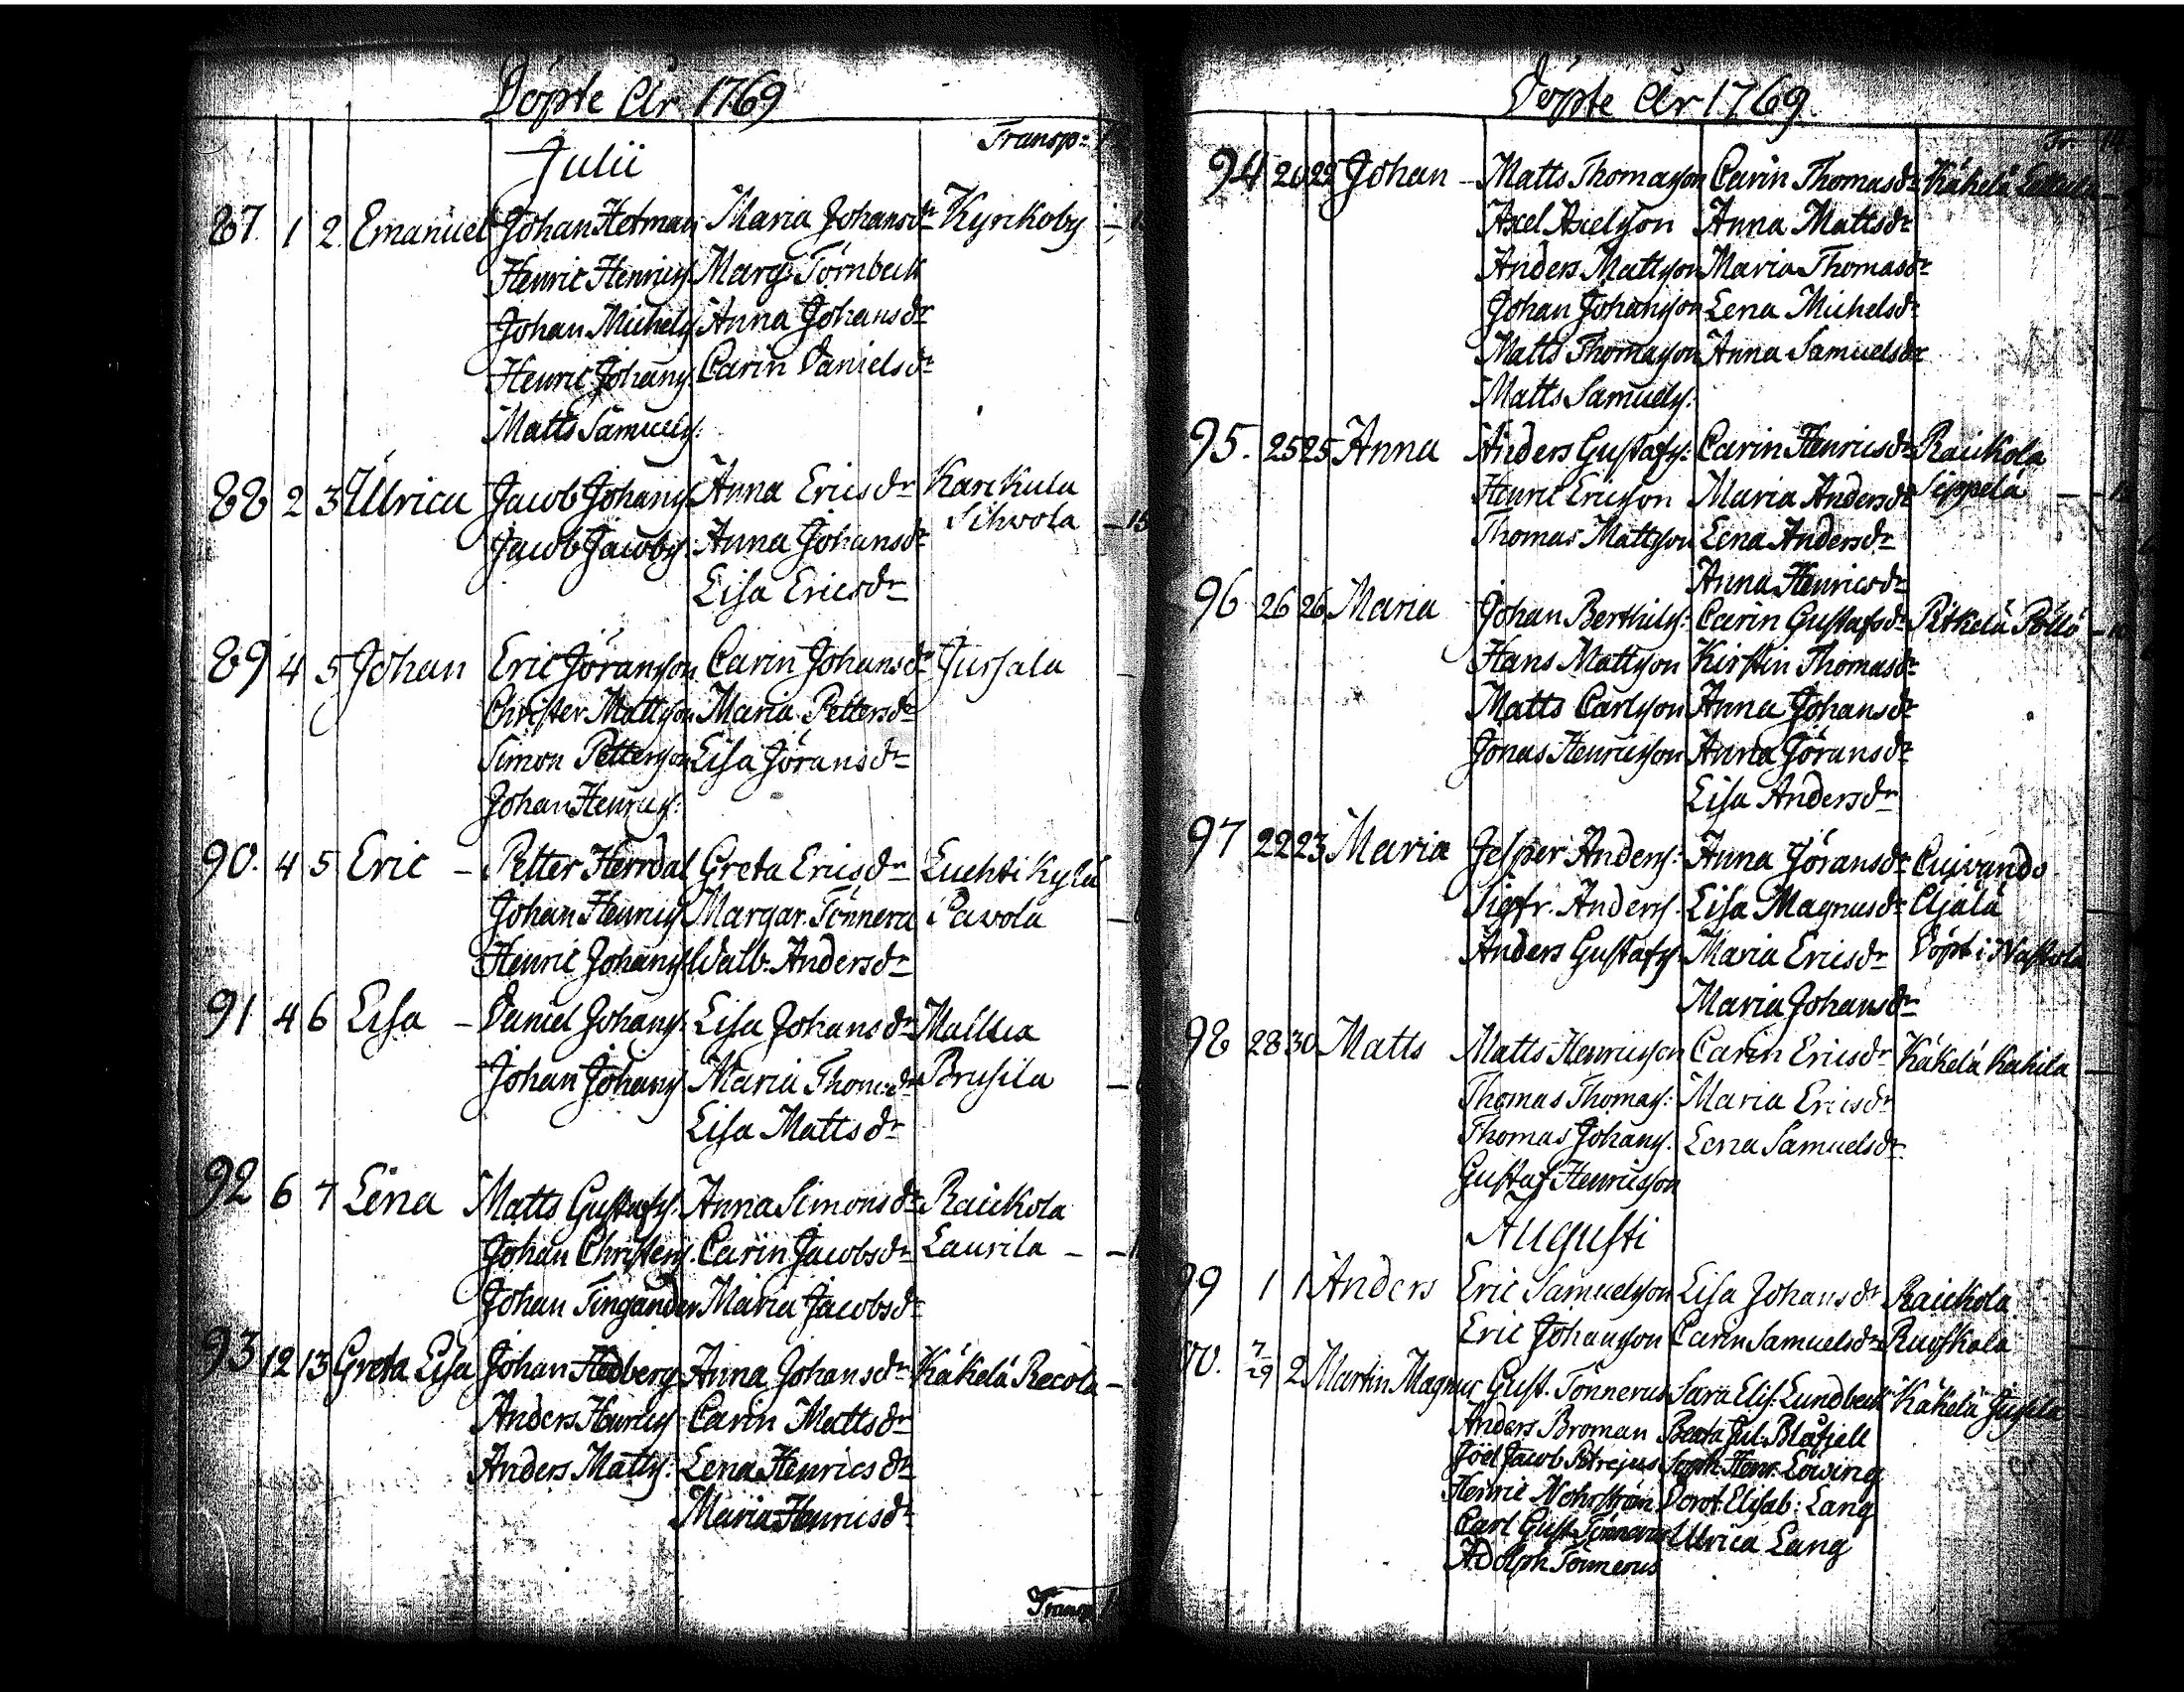 Döpte År 1769
Transp:
Julii
87. 1 2. Emanuel Johan Hetman Maria Johansdr Kyrkoby
Henric Henrics. Marg. Törnbeck
Johan Michels. Anna Johansdr
Henric Johans. Carin Danielsdr
Matts Samuels:
88 2 3 Ulrica Jacob Johans. Anna Ericsdr Karikula
Jacob Jacobs. Anna Johansdr Sihvola – 15
Lisa Ericsdr
89 4 5 Johan Eric Jöransson Carin Johansdr Jussala
Christer Mattsson Maria Pettersdr
Simon Pettersson Lisa Jöransdr
Johan Henrics:
90. 4 5 Eric – Petter Herrdal Greta Ericsdr Luchtikylä
Johan Henrics. Margar. Tönnera Pavola
Henric Johans. Walb. Andersdr
91 4 6 Lisa – Daniel Johans. Lisa Johansdr Mallica
Johan Johans. Maria Thom:dr Brusila
Lisa Mattsdr
92 6 7 Lena Matts Gustafs. Anna Simonsdr Raickola
Johan Christers. Carin Jacobsdr Laurila –
Johan Tingander Maria Jacobsdr
93 12 13 Greta Lisa Johan Hedberg Anna Johansdr Käkelä Recola –
Anders Henrics. Carin Mattsdr
Anders Matts: Lena Henricsdr
Maria Henricsdr
Transp
Döpte År 1769.
Tr.
94 20 22 Johan – Matts Thomasson Carin Thomasdr Käkelä
Axel Axelsson Anna Mattsdr
Anders Mattsson Maria Thomasdr
Johan Johansson Lena Michelsdr
Matts Thomasson Anna Samuelsdr
Matts Samuels:
95. 25 25 Anna Anders Gustafs: Carin Henricsdr Raickola
Henric Ericsson Maria Andersdr Seppelä –
Thomas Mattsson Lena Andersdr
Anna Henricsdr
96 26 26 Maria Johan Berthils: Carin Gustafsdr Pitkelä Pöllö
Hans Mattsson Kirstin Thomasdr
Matts Carlsson Anna Johansdr
Jonas Henricsson Anna Jöransdr
Lisa Andersdr
97 22 23 Maria Jesper Anders: Anna Jöransdr Cuivando
Sigfr. Anders. Lisa Magnusdr Äjälä
Anders Gustafs. Maria Ericsdr Döpt i
Maria Johansdr
98 28 30 Matts Matts Henricsson Carin Ericsdr Käkelä Kakila
Thomas Thomas: Maria Ericsdr
Thomas Johans. Lena Samuelsdr
Gustaf Henricsson
Augusti
99 1 1 Anders Eric Samuelsson Lisa Johansdr Raickola
Eric Johansson Carin Samuelsdr Rauskala
100. 7/29 2 Martin Magnus Gust. Tönnerus Sara Elis. Lundbeck Käkelä
Anders Broman Beata Jul. Blåfjell
Joël Jacob Petrejus Soph. Henr. Löwing
Henric Dorot. Elisab: Lang
Carl Gust. Tönnerus Ulrica Lang
Adolph Tönnerus